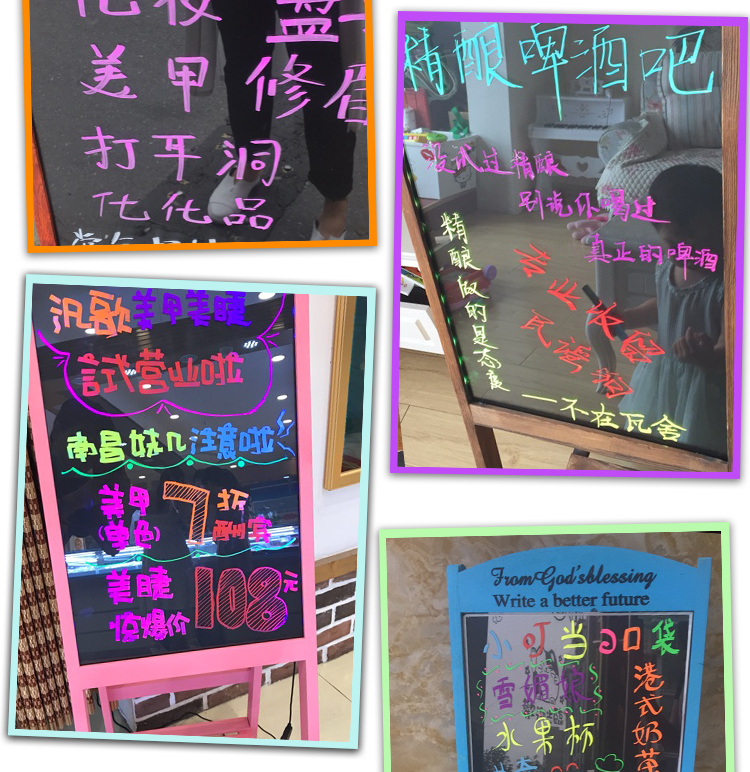 化妆 盘
美甲 修眉
打牙洞
化化品
精酿啤酒吧
没试过精酿
别说你喝过
真正的啤酒
精酿做的是态度
——不在瓦舍
汎歌美甲美睫
試营业啦
南昌妹几注意啦
美甲
(单色)
7折
酬宾
美睫
惊爆价
108元
From God's blessing
Write a better future
小叮当口袋
雪媚娘
水果杯
港式奶